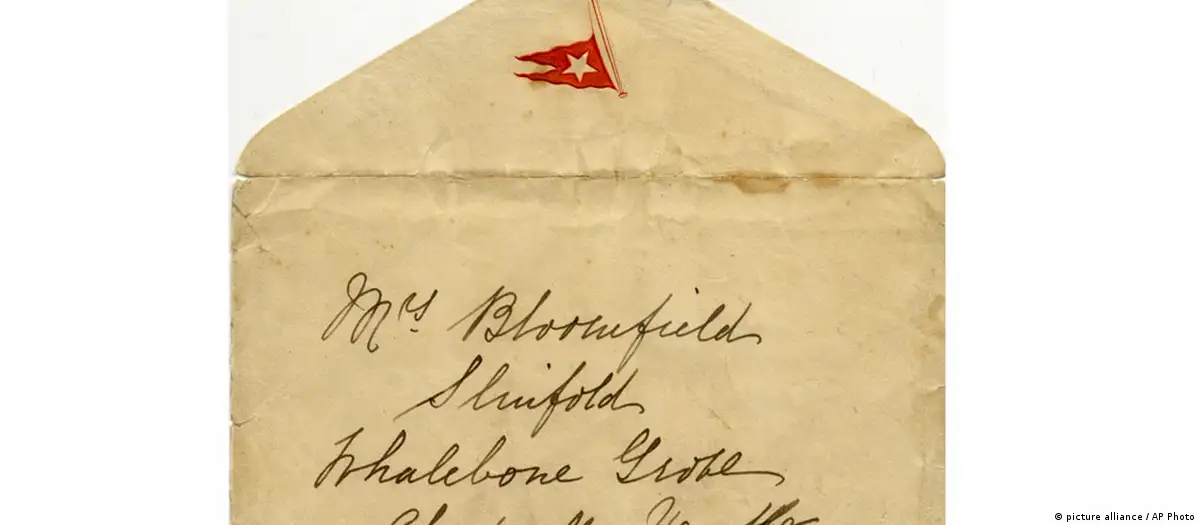 Mrs Bloomfield
Slinfold
Whalebone Grove
© picture alliance / AP Photo